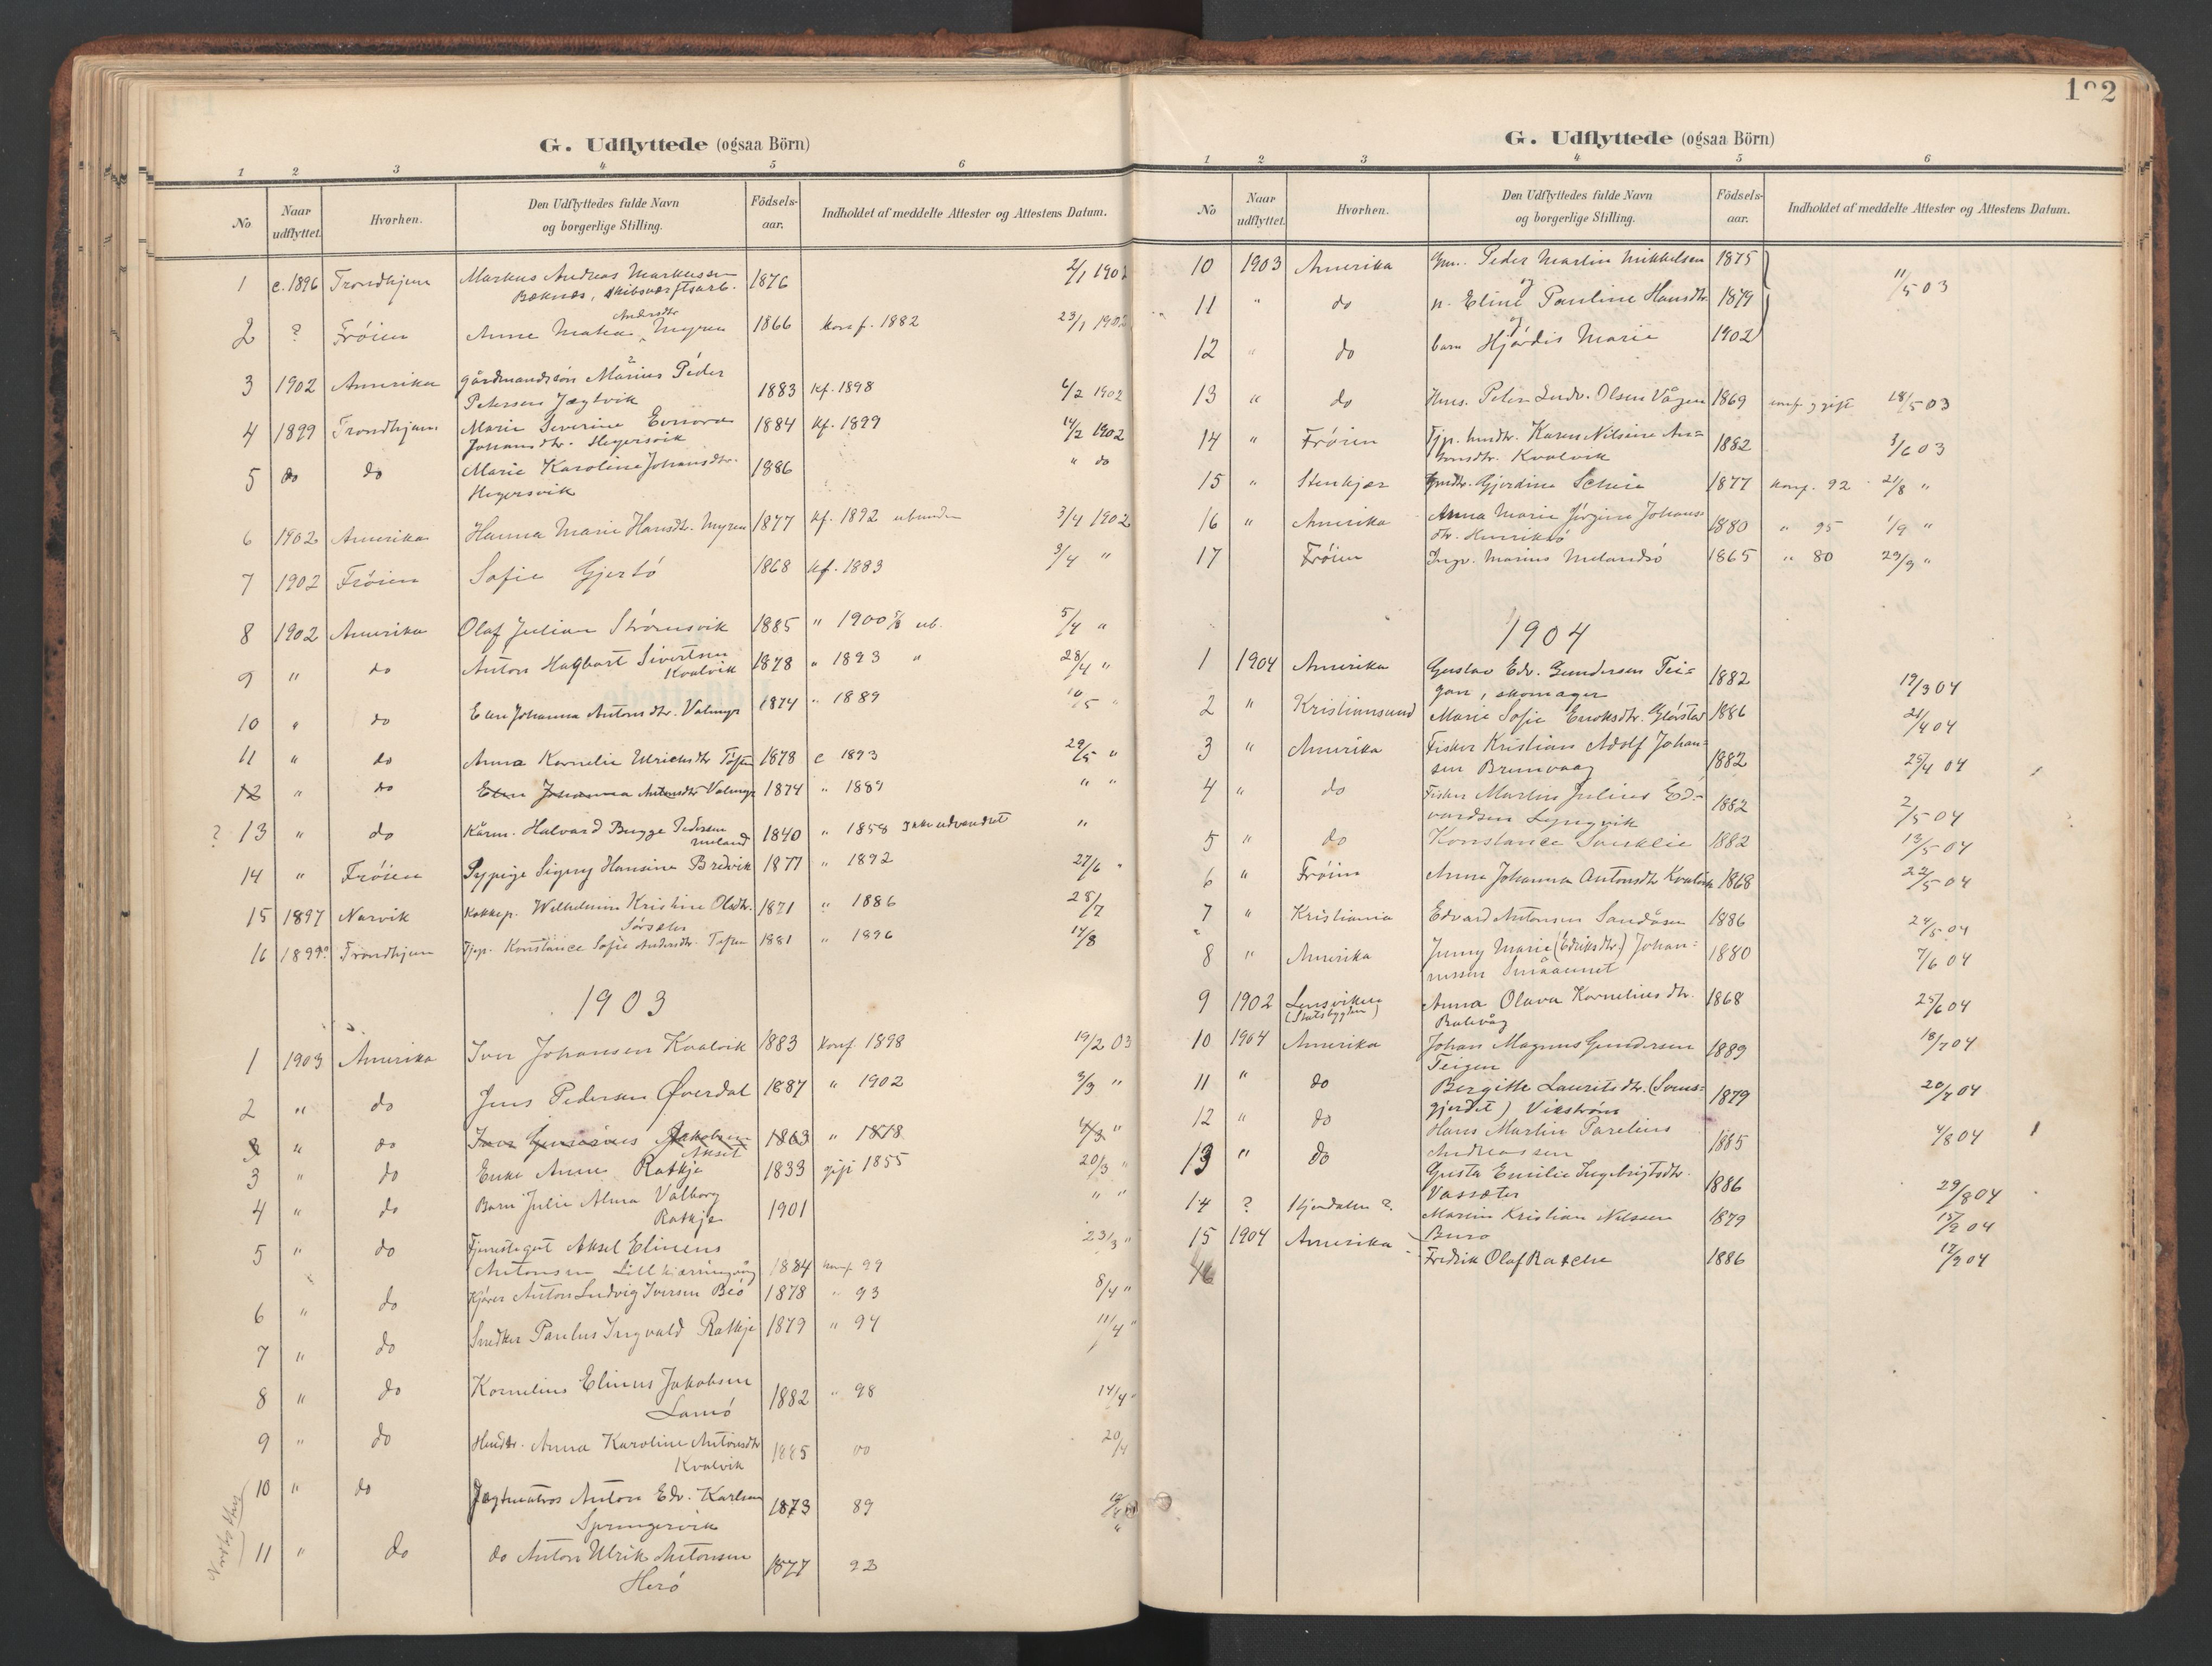 G. Udflyttede (ogsaa Börn)
1 2 3 4 5 6
No Naar udflyttet. Hvorhen. Den Udflyttedes fulde Navn og borgerlige Stilling. Födsels-aar. Indholdet af meddelte Attester og Attestens Datum.
1 c. 1896 Trondhjem Markus Andreas Markussen 1876 2/1 1902
Bæknes, skibsværftsarb.
Andersdtr
2 ? Frøien Anne Myren 1866 konf. 1882 23/1 1902
3 1902 Amerika gårdmandssøn Marius Peder
Petersen Jægtvik 1883 kf. 1898 6/2 1902
4 1899 Trondhjem Marie Severine
Johansdtr. Hegersvik 1884 kf. 1899 14/2 1902
5 do do Marie Karoline Johansdtr. 1886 " do
Hegersvik
6 1902 Amerika Hanna Marie Hansdtr. Myren 1877 kf. 1892 ubunden 3/4 1902
7 1902 Frøien Sofie Gjertö 1868 kf. 1883 3/4 "
8 1902 Amerika Olaf Julian Strömsvik 1885 " 1900 ub. 5/4 "
9 " do Anton Hagbart Sivertsen 1878 " 1893 " 28/4 "
Kvalvik
10 " do Elen Johanna Antonsdtr. Valmyr 1874 " 1889 10/5 "
11 " do Anna Kornelie Ulrichsdtr Töften 1878 c 1893 29/5 "
12 " do Elen Johanna Antonsdtr Valmyr 1874 " 1889 " "
? 13 " do Kårm. Halvard Bugge Pedersen 1840 " 1858 Ikke udvandret "
Meland
14 " Frøien Sypige Signy Hansine Bredvik 1877 " 1892 27/6 "
15 1897 Narvik Kokkep. Wilhelmine Kristine Olsdtr. 1871 " 1886 28/7
Sørsæter
16 1899? Trondhjem Tjp. Konstance Sofie Andersdtr. Töften 1881 " 1896 14/8
1903
1 1903 Amerika Iver Johansen Kvalvik 1883 konf. 1898 19/2 03
2 " do Jens Pedersen Øverdal 1887 " 1902 3/3 "
3 " do Jakobsen 1863 " 1878 4/3 "
Akset
3 " do Enke Anne Ratkje 1833 gift 1855 20/3 "
4 " do Barn Julie Alma Valborg
Ratkje 1901 " "
5 " do Tjenestegut Aksel Elinens 23/3 "
Antonsen Lillkjærringvåg 1884 konf 99
6 " do Kjører Anton Ludvig Iversen Beö 1878 " 93 8/4 "
7 " do Snedker Paulus Ingvald Ratkje 1879 " 94 11/4 "
8 " do Kornelius Elinus Jakobsen
Lamö 1882 " 98 14/4 "
9 " do Husdtr. Anna Karoline Antonsdtr
Kvalvik 1885 00 20/4
10 " do Jægtmatros Anton Edv. Karlsen
Springervik 1873 89
11 " do do Anton Ulrik Antonsen
Herö 1877 93
192
G. Udflyttede (ogsaa Börn)
1 2 3 4 5 6
No Naar udflyttet. Hvorhen. Den Udflyttedes fulde Navn og borgerlige Stilling. Födsels-aar. Indholdet af meddelte Attester og Attestens Datum.
10 1903 Amerika Gm. Peder Martin Mikkelsen 1875
og
11 " do h. Eline Pauline Hansdtr. 1879 11/5 03
og
12 " do barn Hjördis Marie 1902
13 " do Husm. Peter Ludv. Olsen Vågen 1869 konf. 18/5 03
14 " Frøien Tjp. husdtr. Karen Nilsine An=
tonsdtr. Kvalvik 1882 3/6 03
15 " Stenkjær Gmdtr. Gjerdine Scheie 1877 konf. 92 21/8 "
16 " Amerika Anna Marie Jörgine Johans=
dtr. Henriksö 1880 " 95 1/9 "
17 Frøien Ingv. Marius Melandsö 1865 " 80 29/9 "
1904
1 1904 Amerika Gustav Edv. Gundersen Tei=
gen, skomager 1882 19/3 04
2 " Kristiansund Marie Sofie Eriksdtr. Glörstad 1886 21/4 04
3 " Amerika Fisker Kristian Adolf Johan=
sen Brunvaag 1882 25/4 04
4 " do Fisker Martin Julius Ed=
vardsen Lyngvik 1882 2/5 04
5 " do Konstance 1882 13/5 04
6 " Frøien Anne Johanna Antonsdtr Kvalvik 1868 22/5 04
7 " Kristiania Edvard Antonsen Sandåsen 1886 24/5 04
8 " Amerika Jenny Marie (Edriksdtr.) Johan=
nessen Småaunet 1880 7/6 04
9 1902 Lensviken
(Stadsbygden) Anna Olava Kornelius dtr. 1868 25/6 04
Balevåg
10 1904 Amerika Johan Magnus Gundersen 1889 18/7 04
Teigen
11 " do Bergitte Lauritsdtr. (Soms=
gjerdet) Vikström 1879 20/7 04
12 " do Hans Martin Parelius
Andreassen 1885 4/8 04
13 " do Gusta Emilie Ingebrigtsdtr.
Vassæter 1886 29/8 04
14 ? Hjerdalen ? Martin Kristian Nilssen 1879 15/9 04
15 1904 Amerika Burö
16 Fredrik Olaf Ratche 1886 17/9 04